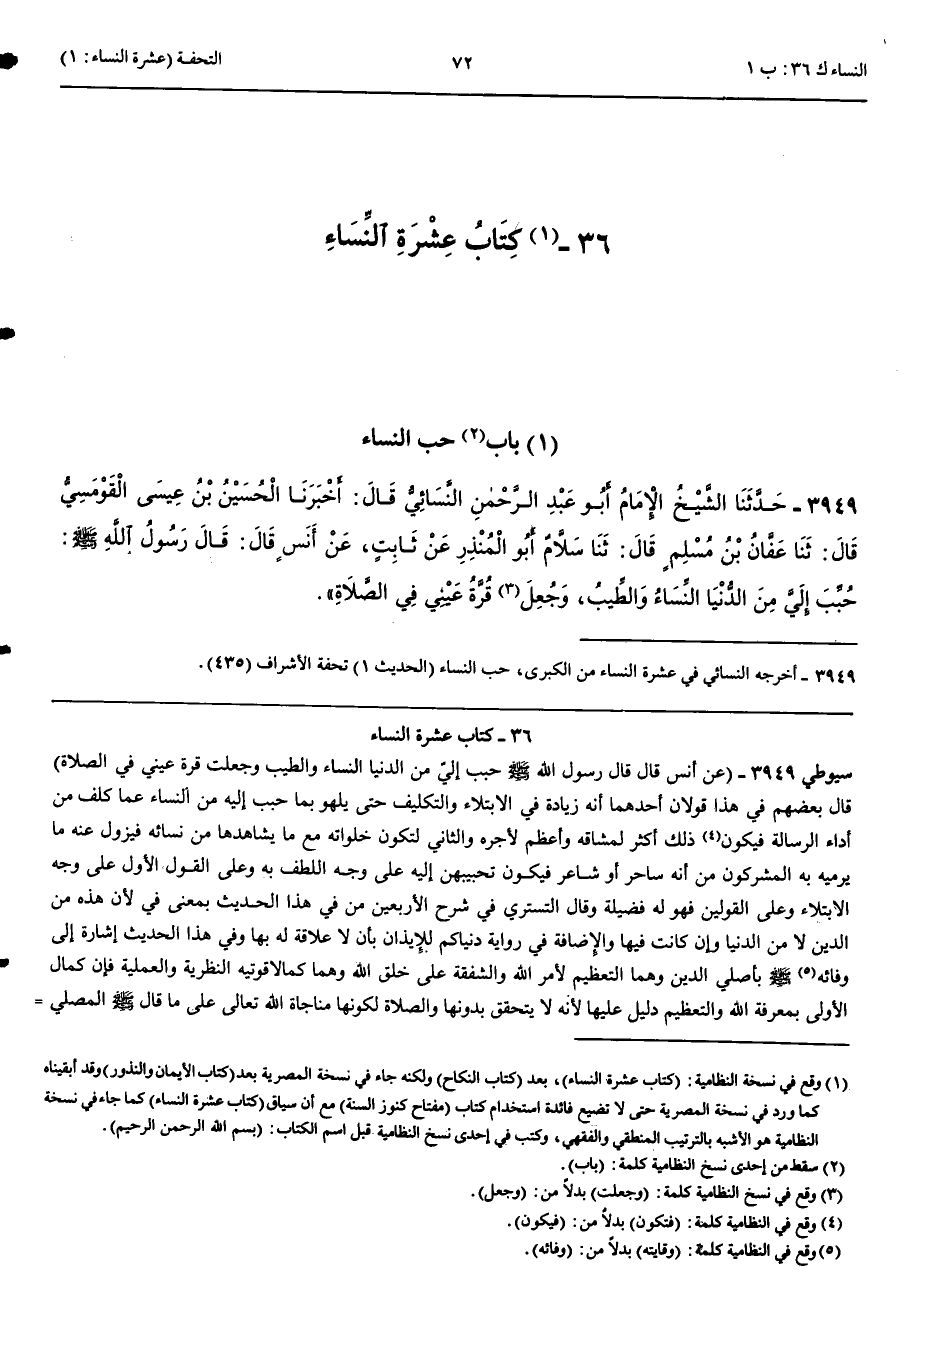 النساء ك ٣٦: ب ١
٧٢
التحفة (عشرة النساء: ١)
٣٦ ـ (١) كِتَابُ عِشْرَةِ ٱلنِّسَاءِ
(١) باب(٢) حب النساء
٣٩٤٩ ـ حَدَّثَنَا الشَّيْخُ الإِمَامُ أَبُو عَبْدِ الرَّحْمٰنِ النَّسَائِيُّ قَالَ: أَخْبَرَنَا الْحُسَيْنُ بْنُ عِيسَى الْقَوْمَسِيُّ
قَالَ: ثَنَا عَفَّانُ بْنُ مُسْلِمٍ قَالَ: ثَنَا سَلَّامٌ أَبُو الْمُنْذِرِ عَنْ ثَابِتٍ، عَنْ أَنَسٍ قَالَ: قَالَ رَسُولُ ٱللَّهِ ﷺ:
حُبِّبَ إِلَيَّ مِنَ الدُّنْيَا النِّسَاءُ وَالطِّيبُ، وَجُعِلَ(٣) قُرَّةُ عَيْنِي فِي الصَّلَاةِ».
٣٩٤٩ ـ أخرجه النسائي في عشرة النساء من الكبرى، حب النساء (الحديث ١) تحفة الأشراف (٤٣٥).
٣٦ ـ كتاب عشرة النساء
سيوطي ٣٩٤٩ ـ (عن أنس قال قال رسول الله ﷺ حبب إليّ من الدنيا النساء والطيب وجعلت قرة عيني في الصلاة)
قال بعضهم في هذا قولان أحدهما أنه زيادة في الابتلاء والتكليف حتى يلهو بما حبب إليه من النساء عما كلف من
أداء الرسالة فيكون(٤) ذلك أكثر لمشاقه وأعظم لأجره والثاني لتكون خلواته مع ما يشاهدها من نسائه فيزول عنه ما
يرميه به المشركون من أنه ساحر أو شاعر فيكون تحبيبهن إليه على وجه اللطف به وعلى القول الأول على وجه
الابتلاء وعلى القولين فهو له فضيلة وقال التستري في شرح الأربعين من في هذا الحديث بمعنى في لأن هذه من
الدين لا من الدنيا وإن كانت فيها والإضافة في رواية دنياكم للإيذان بأن لا علاقة له بها وفي هذا الحديث إشارة إلى
وفائه(٥) ﷺ بأصلي الدين وهما التعظيم لأمر الله والشفقة على خلق الله وهما كمالاقوتيه النظرية والعملية فإن كمال
الأولى بمعرفة الله والتعظيم دليل عليها لأنه لا يتحقق بدونها والصلاة لكونها مناجاة الله تعالى على ما قال ﷺ المصلي =
(١) وقع في نسخة النظامية: (كتاب عشرة النساء)، بعد (كتاب النكاح) ولكنه جاء في نسخة المصرية بعد (كتاب الأيمان والنذور) وقد أبقيناه
كما ورد في نسخة المصرية حتى لا تضيع فائدة استخدام كتاب (مفتاح كنوز السنة) مع أن سياق (كتاب عشرة النساء) كما جاء في نسخة
النظامية هو الأشبه بالترتيب المنطقي والفقهي، وكتب في إحدى نسخ النظامية قبل اسم الكتاب: (بسم الله الرحمن الرحيم).
(٢) سقط من إحدى نسخ النظامية كلمة: (باب).
(٣) وقع في نسخ النظامية كلمة: (وجعلت) بدلاً من: (وجعل).
(٤) وقع في النظامية كلمة: (فتكون) بدلاً من: (فيكون).
(٥) وقع في النظامية كلمة: (وقايته) بدلاً من: (وفائه).